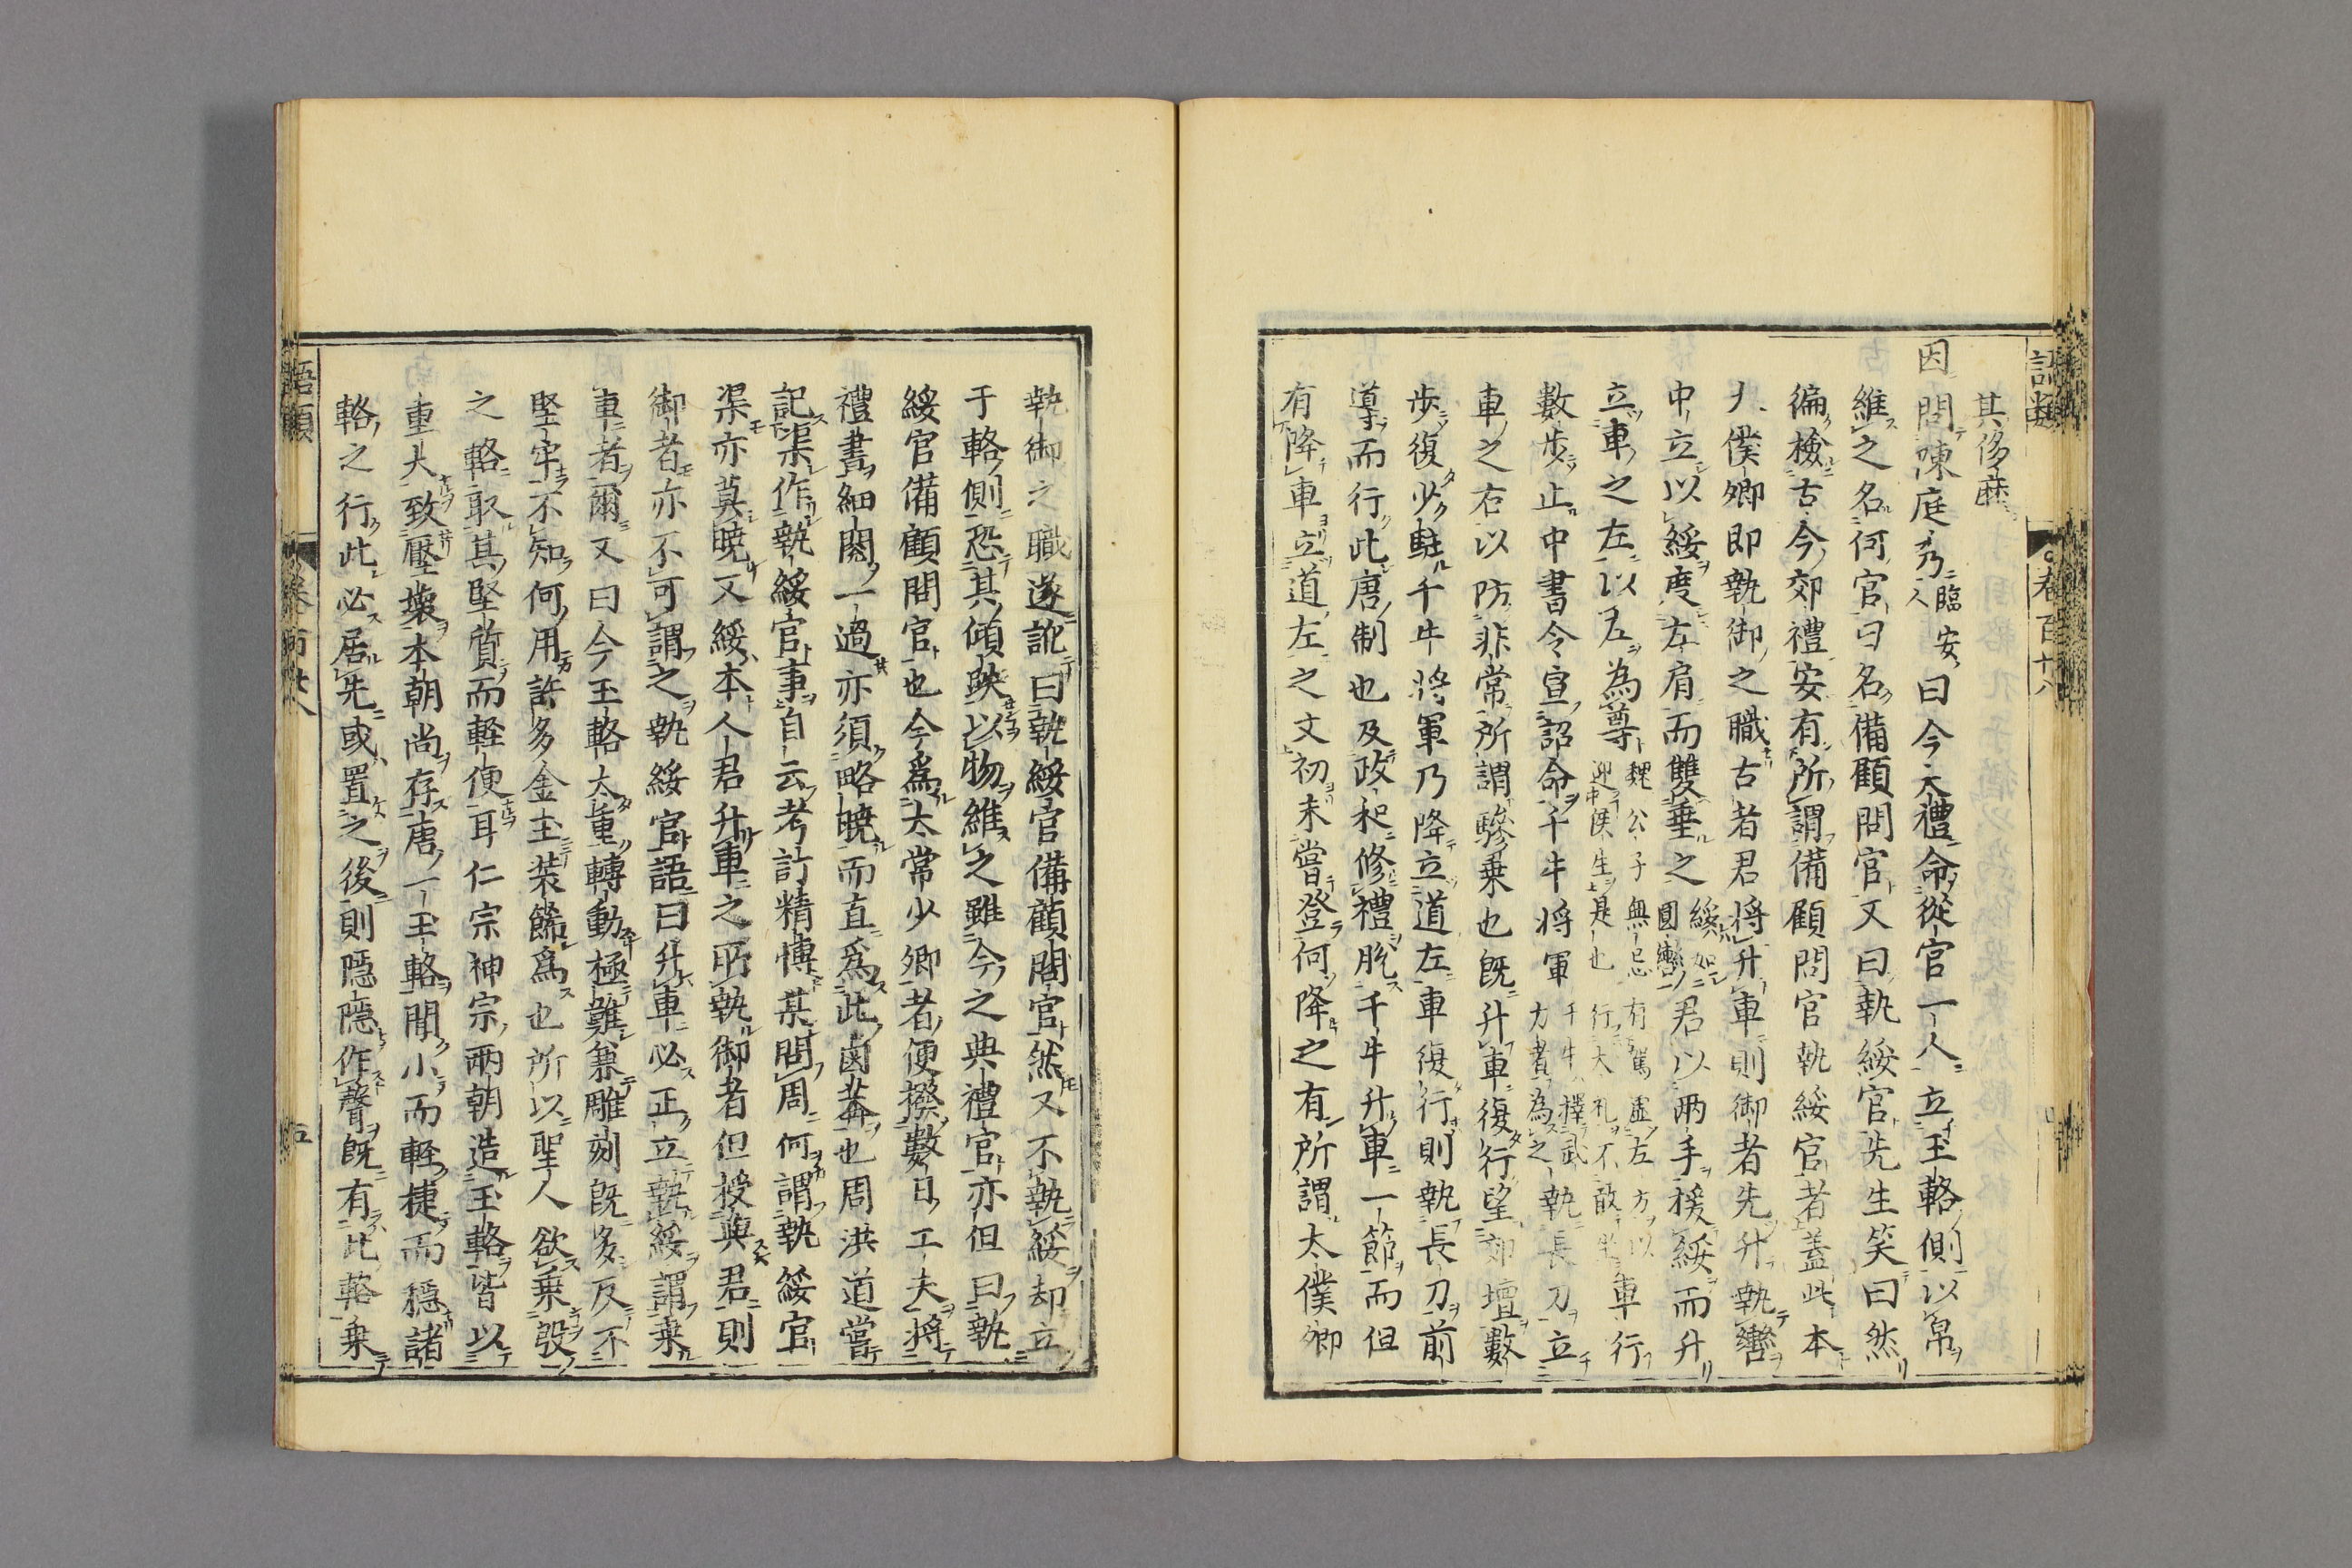 語類
卷百十八
其侈靡
因問陳庭秀臨安人曰今大禮命從官一人立玉輅側以帛
維之名何官曰名備顧問官又曰執綏官先生笑曰然
徧檢古今郊禮安有所謂備顧問官執綏官者蓋此本
太僕卿即執御之職古者君將升車則御者先升執轡
中立以綏度左肩而雙垂之綏如圓轡君以兩手援綏而升
立車之左以左為尊魏公子無忌迎侯生是也有駕虛左方以行大礼不敢坐車行
數步止中書令宣詔命千牛將軍千牛擇武力者為之執長刀立
車之右以防非常所謂驂乗也既升車復行望郊壇數
步復少駐千牛將軍乃降立道左車復行則執長刀前
導而行此唐制也及政和修禮脫千牛升車一節而但
有降車立道左之文初未嘗登何降之有所謂太僕卿
執御之職遂訛曰執綏官備顧問官然又不執綏却立
于輅側恐其傾跌以物維之雖今之典禮官亦但曰執
綏官備顧問官也今為太常少卿者便撥數日工夫將
禮書細閱一過亦須略曉而直為此鹵莽也周洪道嘗
記渠作執綏官事自云考訂精博某問周何謂執綏官
渠亦莫曉又綏本人君升車之所執御者但授與君則
御者亦不可謂之執綏官語曰升車必正立執綏謂乗
車者爾又曰今玉輅太重轉動極難兼雕刻既多反不
堅牢不知何用許多金玉裝飾為也所以聖人欲乗殷
之輅取其堅質而輕便耳仁宗神宗兩朝造玉輅皆以
重大致壓壞本朝尚存唐一玉輅聞小而輕捷而穩諸
輅之行此必居先或置之後則隱隱作聲既有此輅乗
語類
五